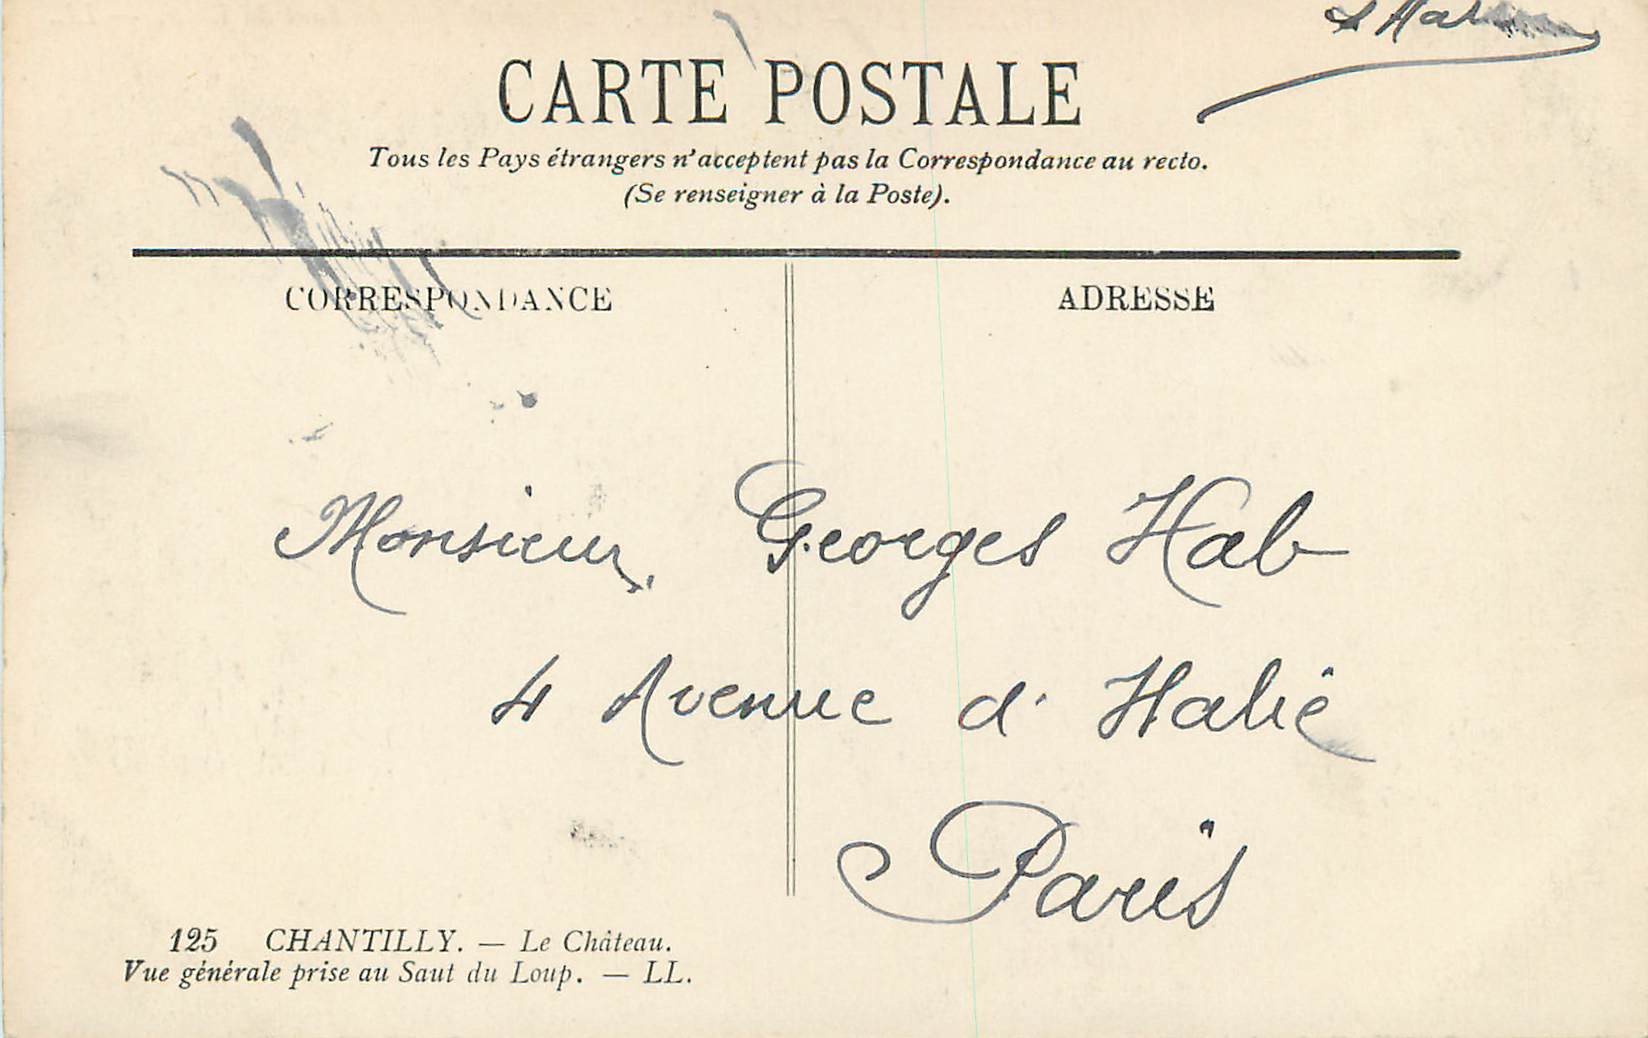 CARTE POSTALE
Tous les Pays étrangers n'acceptent pas la Correspondance au recto.
(Se renseigner à la Poste).
CORRESPONDANCE
ADRESSE
Monsieur Georges Hab
4 Avenue d'Italie
Paris
125 CHANTILLY. — Le Château.
Vue générale prise au Saut du Loup. — LL.